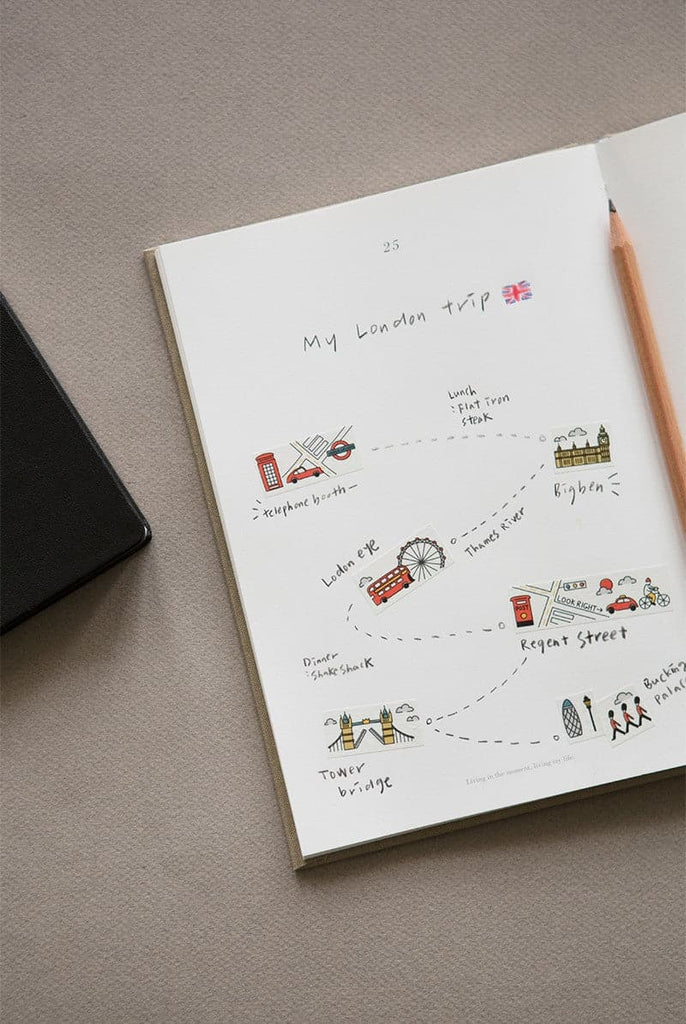 25
My London trip
Lunch
:Flat iron
steak
telephone booth
Bigben
Thames River
Lodon eye
POST
LOOK RIGHT→
Regent Street
Dinner
:Shake shack
Bucking
palac
Tower
bridge
Living in the moment, living my life.